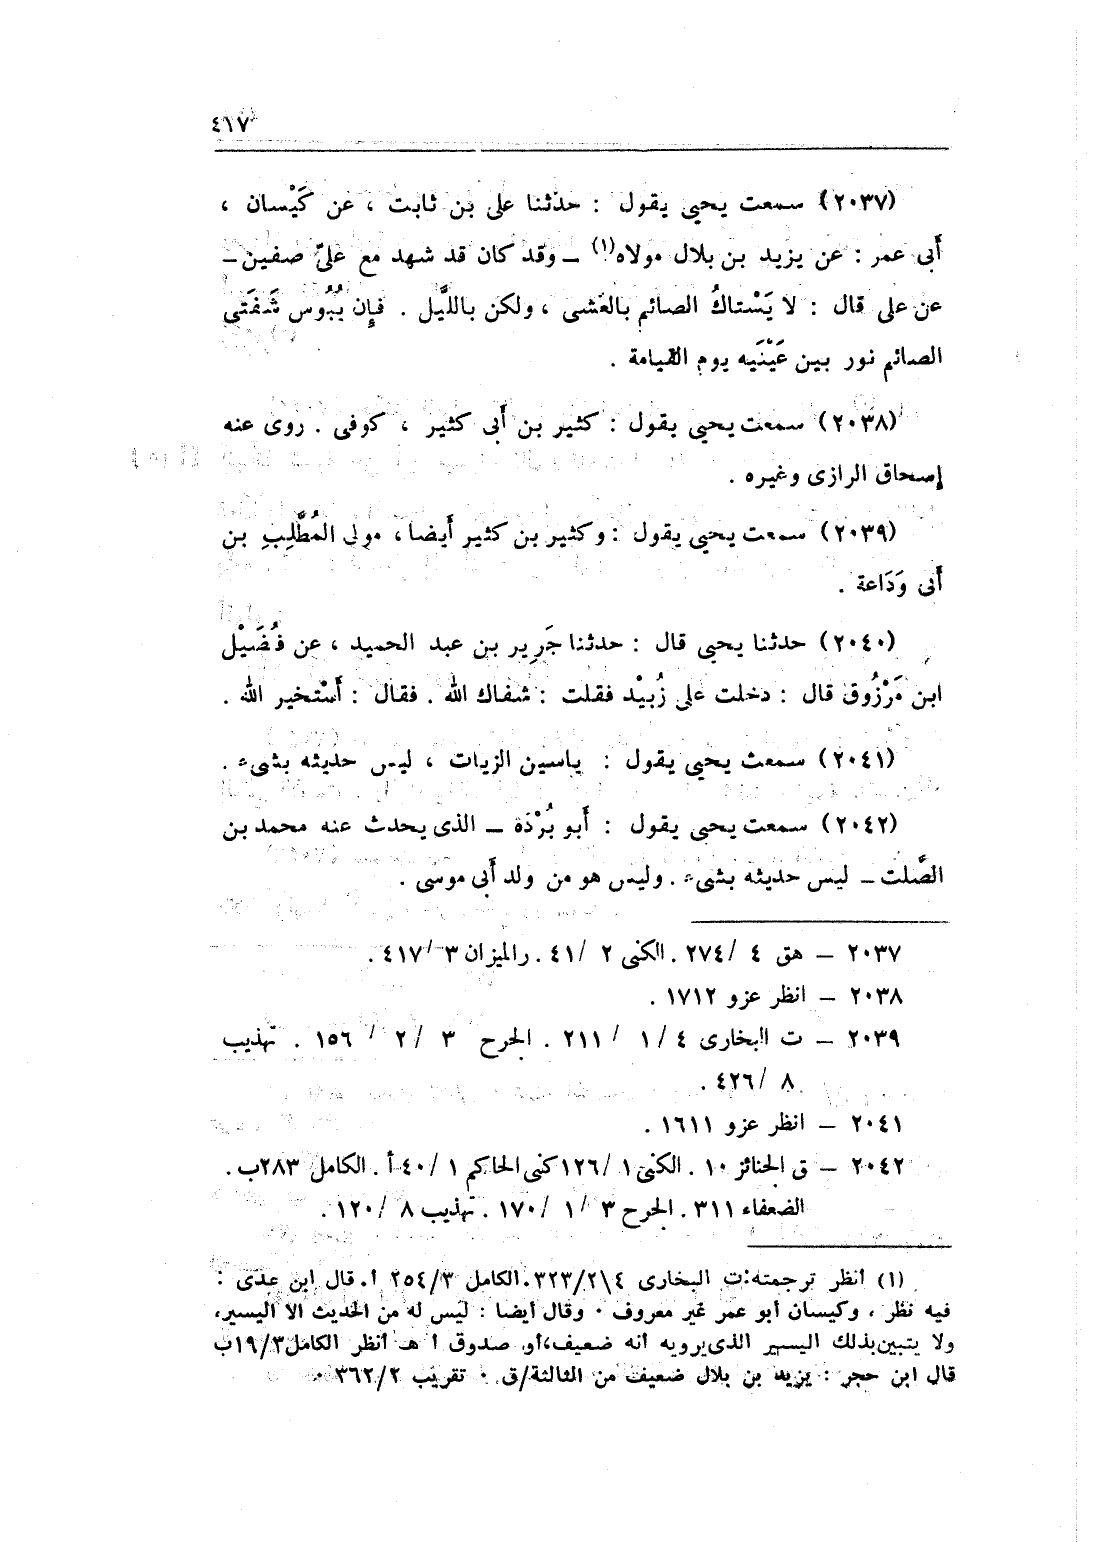 ٤١٧
(٢٠٣٧) سمعت يحيى يقول : حدثنا على بن ثابت ، عن كَيْسان ،
أبى عمر : عن يزيد بن بلال مولاه(١) ــ وقد كان قد شهد مع علىّ صفين ــ
عن على قال : لا يَسْتاكُ الصائم بالعَشى ، ولكن بالليَّل . فإن يُبُوس شَفَتَى
الصائم نور بين عَيْنَيه يوم القيامة .
(٢٠٣٨) سمعت يحيى يقول : كثير بن أَبى كثير ، كوفى . روى عنه
إسحاق الرازى وغيره .
(٢٠٣٩) سمعت يحيى يقول : وكثير بن كثير أَيضا ، مولى المُطَّلِبِ بن
أَبى وَدَاعة .
(٢٠٤٠) حدثنا يحيى قال : حدثنا جَرِير بن عبد الحميد ، عن فُضَيْل
ابن مَرْزُوق قال : دخلت على زُبيْد فقلت : شفاك الله . فقال : أَسْتخير الله .
(٢٠٤١) سمعت يحيى يقول : ياسين الزيات ، ليس حديثه بشىء .
(٢٠٤٢) سمعت يحيى يقول : أَبو بُرْدَة ــ الذى يحدث عنه محمد بن
الصَّلت ــ ليس حديثه بشىء . وليس هو من ولد أَبى موسى .
٢٠٣٧ ــ هق ٤ / ٢٧٤ . الكنى ٢ / ٤١ . والميزان ٣ / ٤١٧ .
٢٠٣٨ ــ انظر عزو ١٧١٢ .
٢٠٣٩ ــ ت البخارى ٤ / ١ / ٢١١ . الجرح ٣ / ٢ / ١٥٦ . تهذيب
٨ / ٤٢٦ .
٢٠٤١ ــ انظر عزو ١٦١١ .
٢٠٤٢ ــ ق الجنائز ١٠ . الكنى ١ / ١٢٦ كنى الحاكم ١ / ٤٠ أ . الكامل ٢٨٣ب .
الضعفاء ٣١١ . الجرح ٣ / ١ / ١٧٠ . تهذيب ٨ / ١٢٠ .
(١) أنظر ترجمته:ت البخارى ٤\٣٢٣/٢.الكامل ٢٥٤/٣ أ. قال ابن عدى :
فيه نظر ، وكيسان أبو عمر غير معروف . وقال أيضا : ليس له من الحديث الا اليسير،
ولا يتبين بذلك اليسير الذى يرويه أنه ضعيف،أو صدوق أ هـ أنظر الكامل١٩/٣ب
قال ابن حجر : يزيد بن بلال ضعيف من الثالثة/ق . تقريب ٣٦٢/٢ .